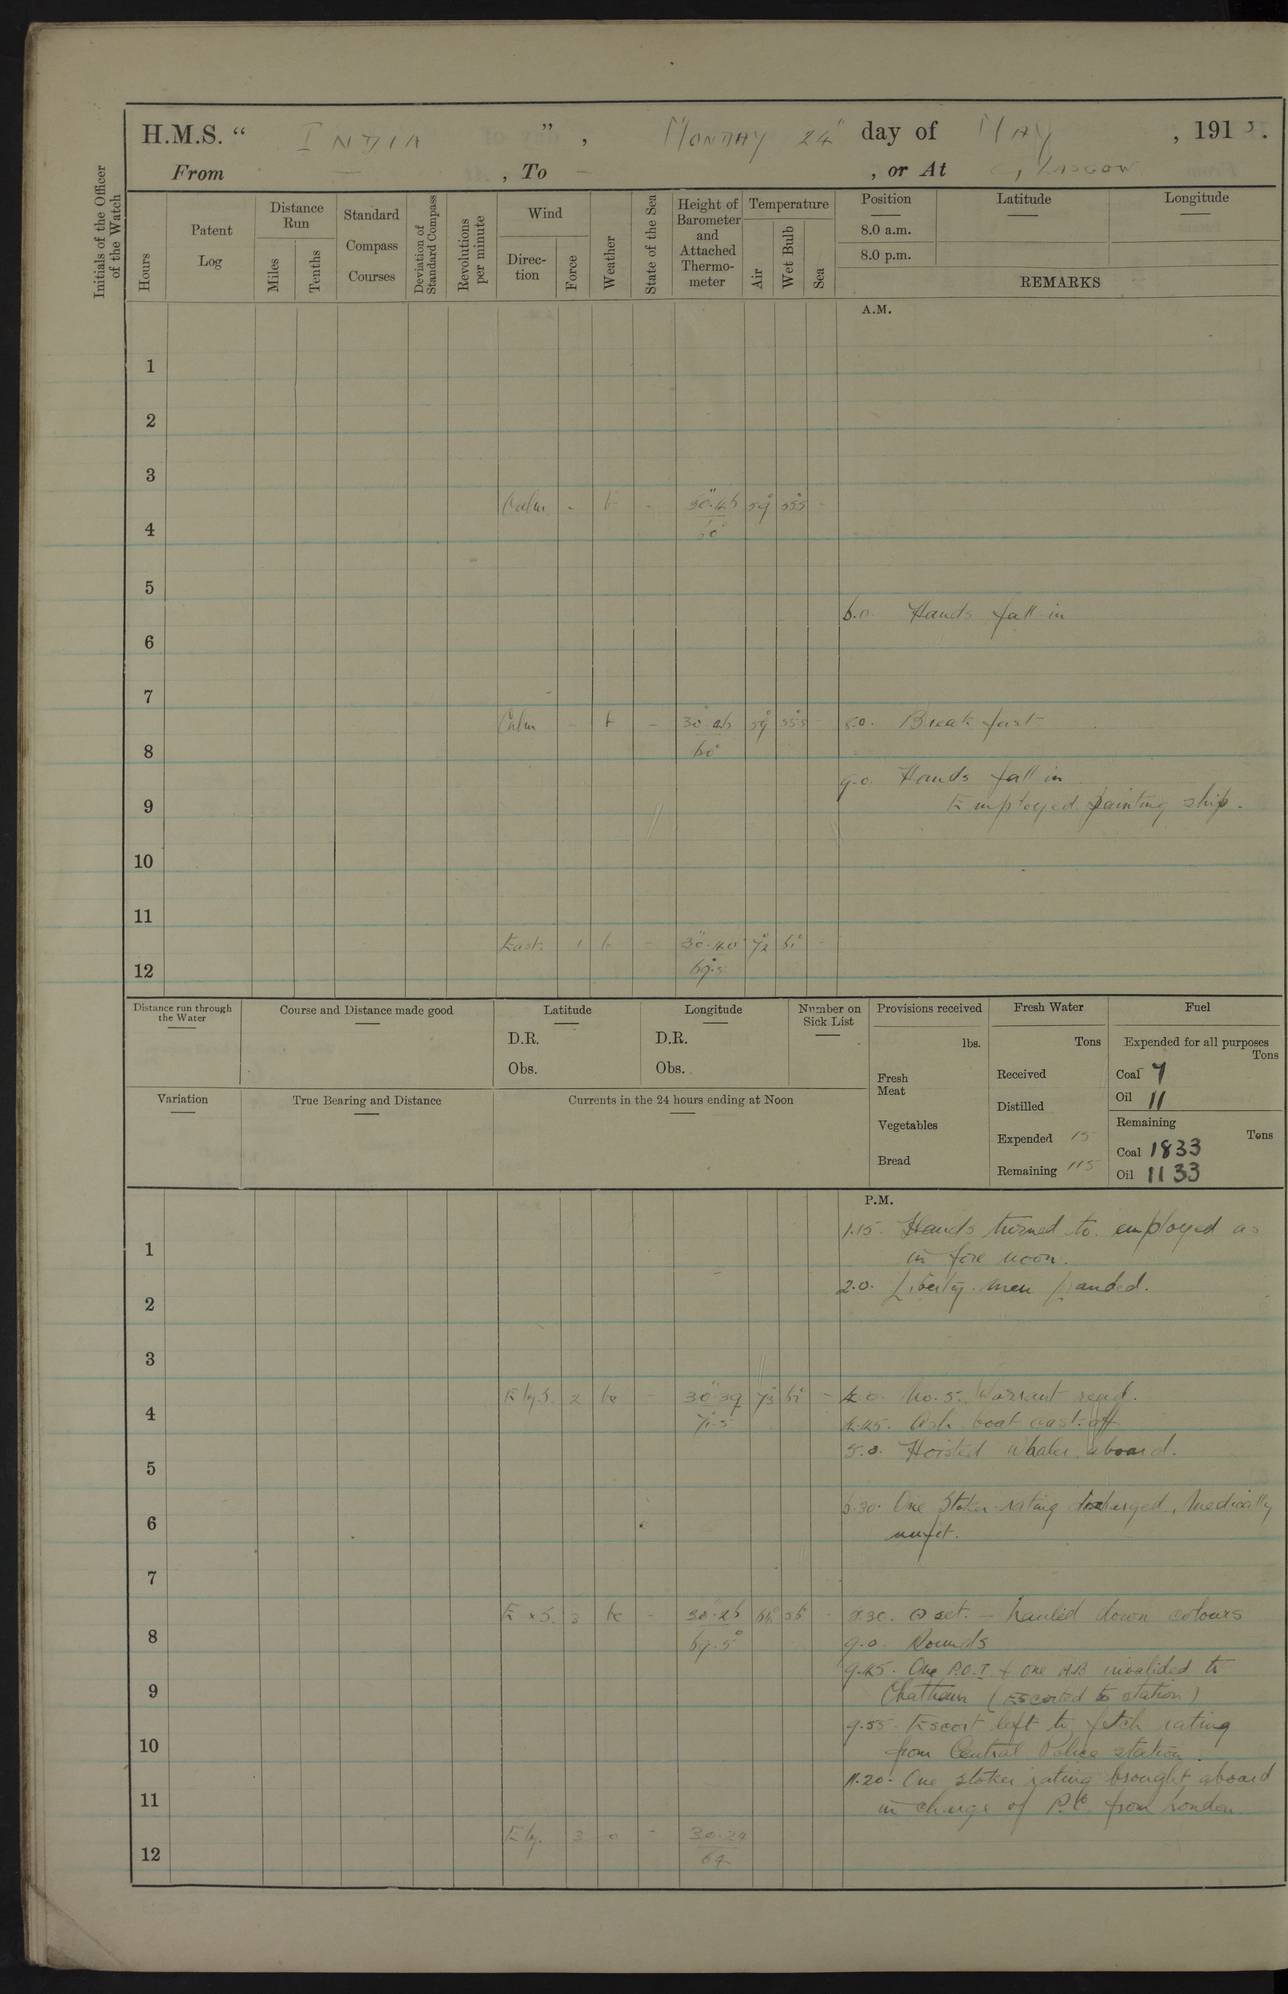 H.M.S. “ INDIA ” , MONDAY 24th day of MAY , 1915.
From — , To — , or At GLASGOW
Initials of the Officer of the Watch
Hours
Patent Log
Distance Run
Miles
Tenths
Standard Compass Courses
Deviation of Standard Compass
Revolutions per minute
Wind
Direction
Force
Weather
State of the Sea
Height of Barometer and Attached Thermometer
Temperature
Air
Wet Bulb
Sea
Position
8.0 a.m.
8.0 p.m.
Latitude
Longitude
REMARKS
A.M.
1
2
3
Calm - b - 59 55.5 -
4 60
5
6.0. Hands fall in
6
7
Calm - b - 59 55.5 - 8.0. Breakfast
8 60
9.0. Hands fall in
9 Employed painting ship.
10
11
East 1 b - 30.40 72 61 -
12 69.5
Distance run through the Water
Course and Distance made good
Latitude
D.R.
Obs.
Longitude
D.R.
Obs.
Number on Sick List
Provisions received
lbs.
Fresh Meat
Vegetables
Bread
Fresh Water
Tons
Received
Distilled
Expended 15
Remaining 115
Fuel
Expended for all purposes
Tons
Coal 7
Oil 11
Remaining
Tons
Coal 1833
Oil 1133
Variation
True Bearing and Distance
Currents in the 24 hours ending at Noon
P.M.
1.15. Hands turned to employed as
1 in fore noon.
2.0. Liberty men landed.
2
3
E by S. 2 - 30.39 73 61 - 4.0. No. 5. Warrant read.
4 71.5 4.45. Ash boat cast off
5.0. Hoisted whaler aboard.
5
6.30. One Stoker rating discharged, Medically
6 unfit.
7
E x S. 3 bc - 8.30. ☉ set. – hauled down colours
8 69.5 9.0. Rounds
9.45. One P.O.I & one AB invalided to
9 Chatham (Escorted to station)
9.55. Escort left to fetch rating
10 from Central Police station.
11.20. One stoker rating brought aboard
11 in charge of P.C. from London
Ely. 3 o -
12